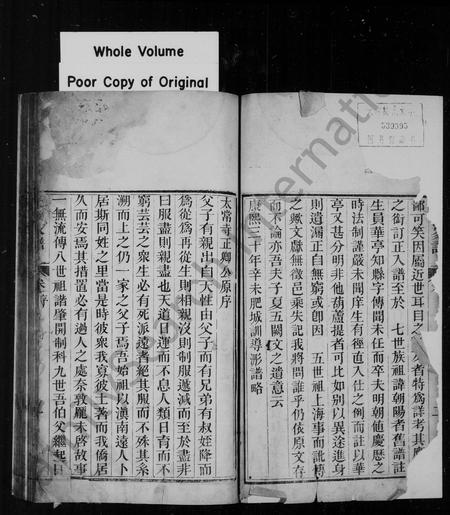 Whole Volume
Poor Copy of Original
539595
鄙可笑因屬近世耳目之者特為詳考其
之銜訂正入譜至於 七世族祖諱朝陽者舊譜註
生員華亭知縣字傳聞未任而卒夫明朝億慶歷之
時法制謹嚴未聞庠生有徑直入仕之例而註以華
亭又甚分明非他葫蘆提者可比如別以異途進身
則遺漏正自無窮或卽因 五世祖上海事而訛傳
之歟文獻無徵邑乘失記我將問誰乎仍依原文存
而不論亦吾夫子夏五闕文之遺意云
康熙三十年辛未肥城訓導澎譜略
太常寺正卿公原序
父子有親出自天性由父子而有兄弟有叔姪降而
為從為再從生則相親沒則制服遞減而至於盡非
曰服盡則親盡也天道日運而不息人類日育而不
窮芸芸之衆生必有死派遠者絕其服而不殊其系
溯而上之仍一家之父子焉吾始祖以漢南遠人卜
居斯同姓之里當是時彼衆我寡彼土著而我僑居
久而安焉其措置必有過人之處奈敦龐未啓故事
一無流傳八世祖諧肇開制科九世吾伯父繼起日